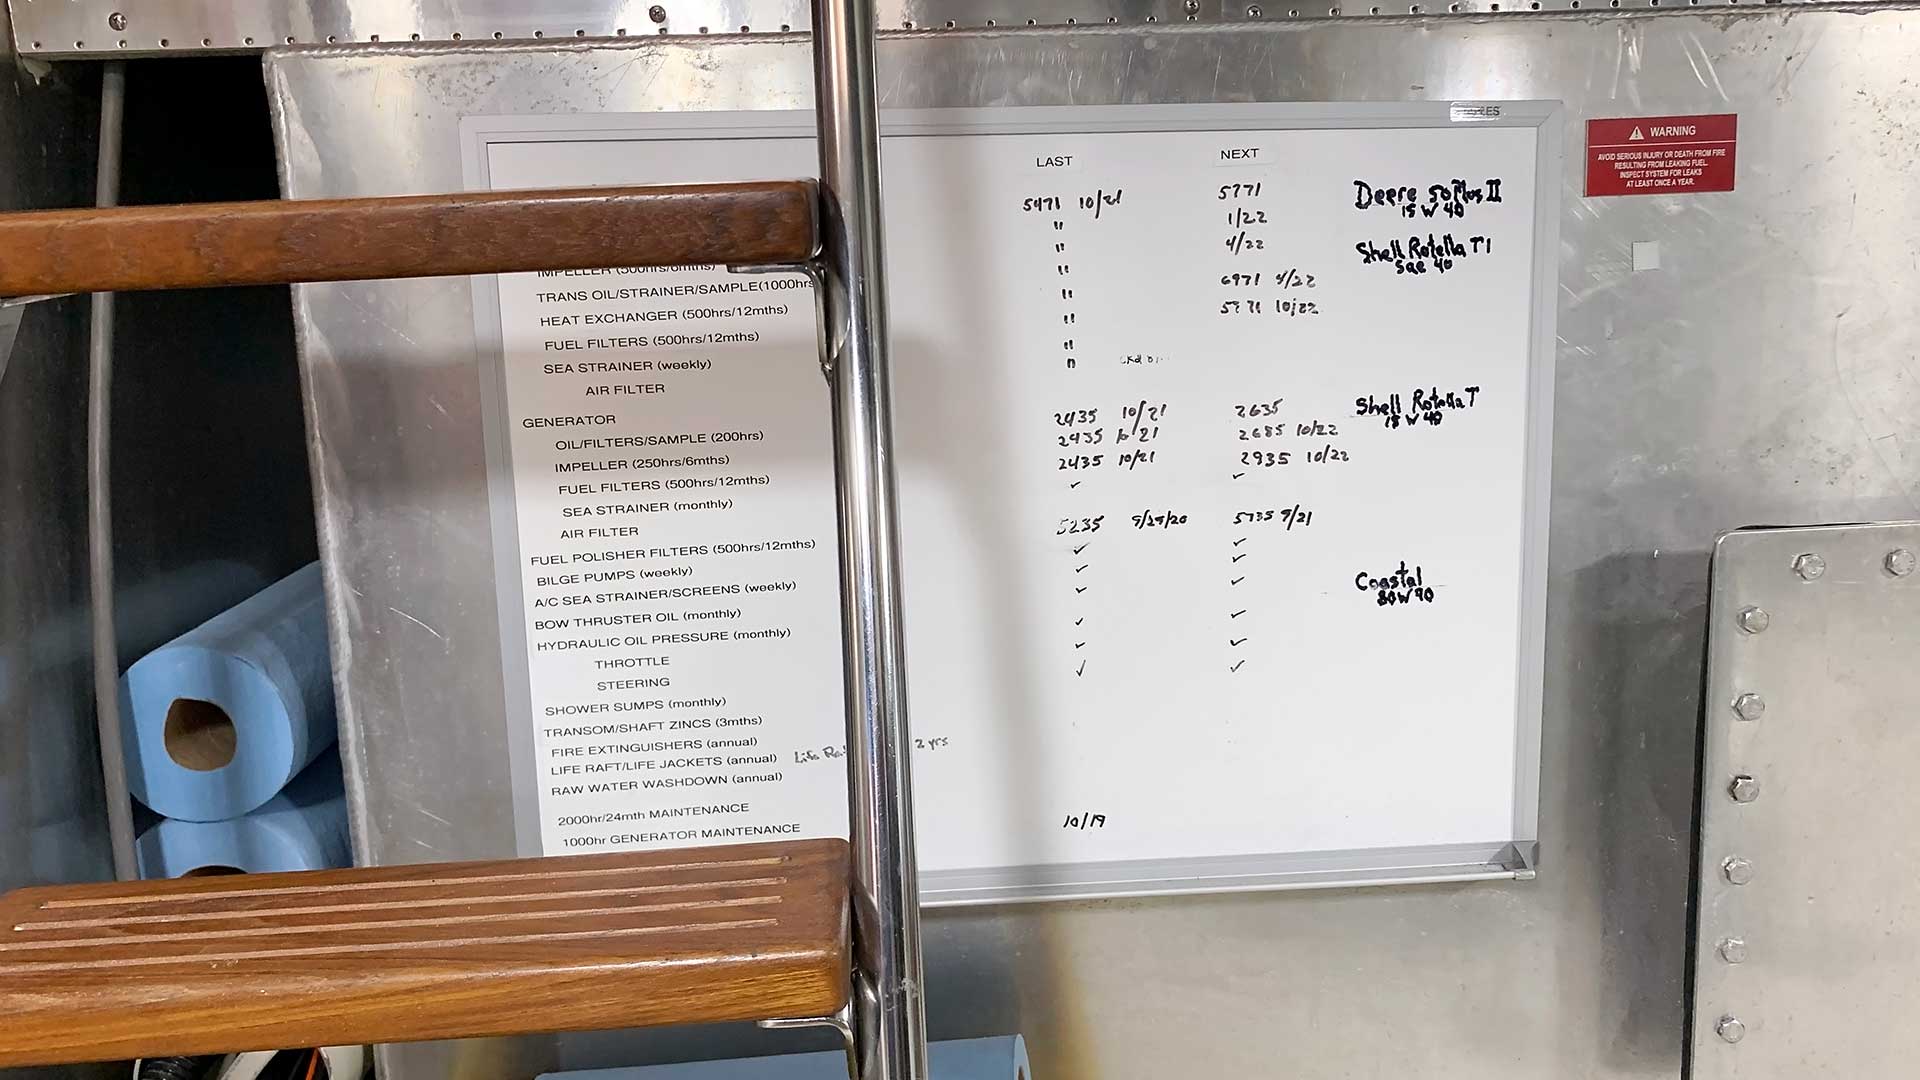 LAST NEXT
5471 10/21 5771 Deere 50 Plus II
" 1/22 15 W 40
" 4/22 Shell Rotella T1
Sae 40
IMPELLER (500hrs/6mths) " 6971 4/22
TRANS OIL/STRAINER/SAMPLE(1000hrs " 10/22
HEAT EXCHANGER (500hrs/12mths) "
FUEL FILTERS (500hrs/12mths) "
SEA STRAINER (weekly) "
AIR FILTER
GENERATOR 2435 10/21 2635 Shell Rotella T
15 W 40
OIL/FILTERS/SAMPLE (200hrs) 2435 10/21 2685 10/22
IMPELLER (250hrs/6mths) 2435 10/21 2935 10/22
FUEL FILTERS (500hrs/12mths) ✓ ✓
SEA STRAINER (monthly)
AIR FILTER 5235 9/29/20 5735 9/21
FUEL POLISHER FILTERS (500hrs/12mths) ✓ ✓
BILGE PUMPS (weekly) ✓ ✓
A/C SEA STRAINER/SCREENS (weekly) ✓ ✓ Coastal
80W90
BOW THRUSTER OIL (monthly) ✓ ✓
HYDRAULIC OIL PRESSURE (monthly) ✓ ✓
THROTTLE ✓ ✓
STEERING
SHOWER SUMPS (monthly)
TRANSOM/SHAFT ZINCS (3mths)
FIRE EXTINGUISHERS (annual)
LIFE RAFT/LIFE JACKETS (annual) Life 2 yrs
RAW WATER WASHDOWN (annual)
2000hr/24mth MAINTENANCE 10/19
1000hr GENERATOR MAINTENANCE
WARNING
AVOID SERIOUS INJURY OR DEATH FROM FIRE
RESULTING FROM LEAKING FUEL.
INSPECT SYSTEM FOR LEAKS
AT LEAST ONCE A YEAR.